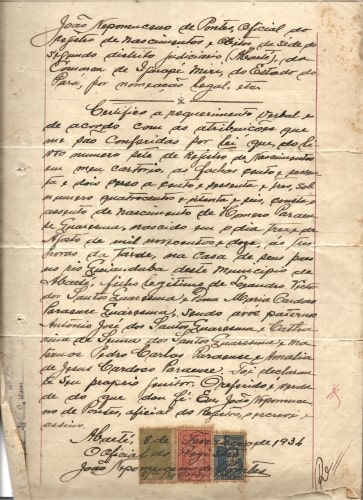 João Nepomuceno de Pontes, Oficial do
Registro de Nascimentos e Obitos, da Sede do
segundo distrito judiciario (Abaeté), da
Comarca de Igarapé Miri, do Estado do
Pará, por nomeação legal, etc.
Certifico a requerimento verbal e
de acordo com as atribuições que
me são conferidas por lei que, do li-
vro numero sete de Registro de Nascimentos
em meu cartorio, as folhas cento e sessen-
ta e dois verso a cento e sessenta e tres, sob
numero quatrocentos e oitenta e seis, consta o
assento de nascimento de Homero Paraen-
se Guaresma, nascido em o dia treze de
Agosto de mil novecentos e doze, às
horas da tarde, na casa de seus paes
no rio deste Municipio de
Abaeté, filho legitimo de Leandro Victo
dos Santos Guaresma e Dona Maria Cardoso
Paraense Guaresma, sendo avós paternos
Antônio José dos Santos Guaresma e
de dos Santos Guaresma e ma-
ternos Pedro Carlos Paraense e Amalia
de Jesus Cardoso Paraense. Foi declaran-
te seu proprio genitor. O referido é verda-
de do que dou fé. Eu, João Nepomuce-
no de Pontes, oficial do Registro, o escrevi e
assino.
Abaeté, 8 de de 1934
O oficial do Registro
João Nepomuceno de Pontes